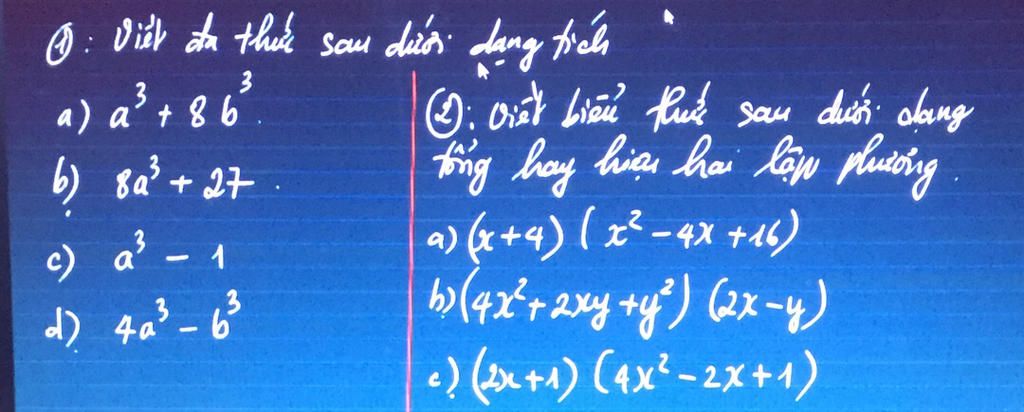 ①: Viết đa thức sau dưới dạng tích
a) a³ + 8b³.
b) 8a³ + 27.
c) a³ - 1
d) 4a³ - b³
②: Viết biểu thức sau dưới dạng
tổng hay hiệu hai lập phương.
a) (x+4) (x² - 4x + 16)
b) (4x² + 2xy + y²) (2x - y)
c) (2x + 1) (4x² - 2x + 1)